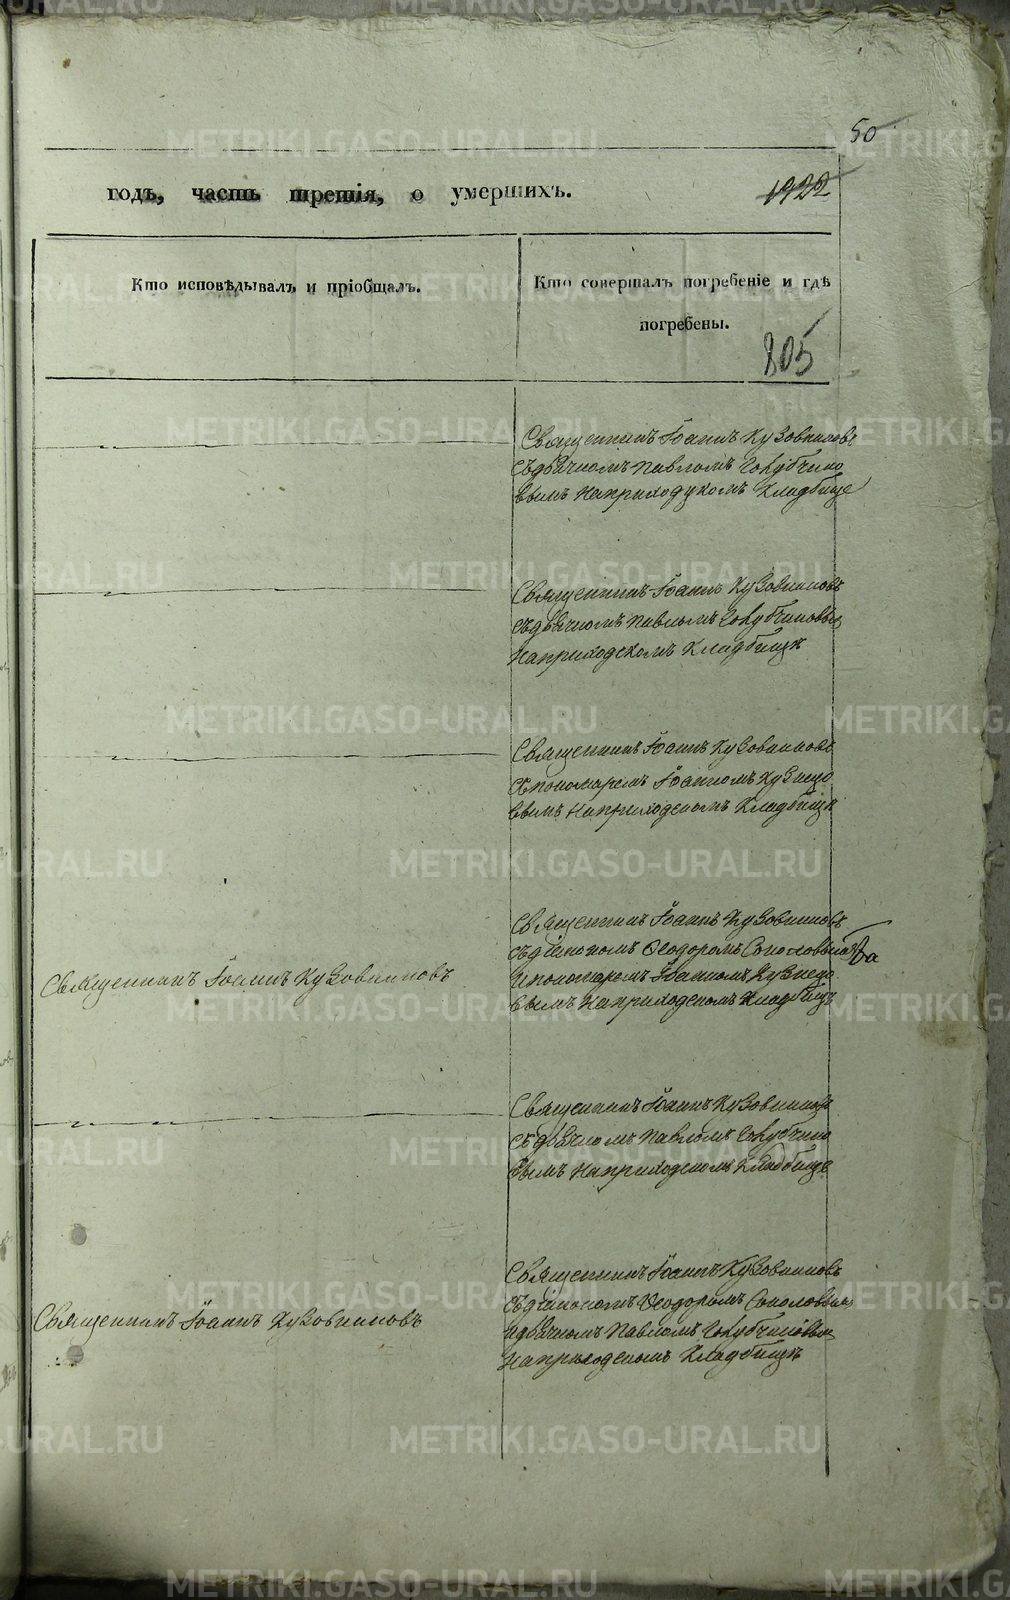 50
годъ, часть третія, о умершихъ. 1922
Кто исповѣдывалъ и пріобщалъ.
Кто совершалъ погребеніе и гдѣ
погребены.
805
Священникъ Іоаннъ Кузовниковъ
съ дьячкомъ Павломъ Голубчико
вымъ на приходском Кладбище
Священникъ Іоаннъ Кузовниковъ
съ дьячкомъ Павломъ Голубчиковым
на приходскомъ Кладбищѣ
Священникъ Іоаннъ Кузовниковъ
с пономаремъ Іоанномъ Кузнецо
вымъ на приходскомъ Кладбищѣ
Священникъ Іоаннъ Кузовниковъ
Священникъ Іоаннъ Кузовниковъ
съ діакономъ Ѳеодоромъ Соколовымъ
и пономаремъ Іоанномъ Кузнецо
вымъ на приходскомъ Кладбищѣ
Священникъ Іоаннъ Кузовниковъ
съ дьячкомъ Павломъ Голубчико
вымъ на приходскомъ Кладбище
Священникъ Іоаннъ Кузовниковъ
Священникъ Іоаннъ Кузовниковъ
съ діакономъ Ѳеодоромъ Соколовым
и дьячкомъ Павломъ Голубчиковым
на приходскомъ Кладбищѣ
METRIKI.GASO-URAL.RU